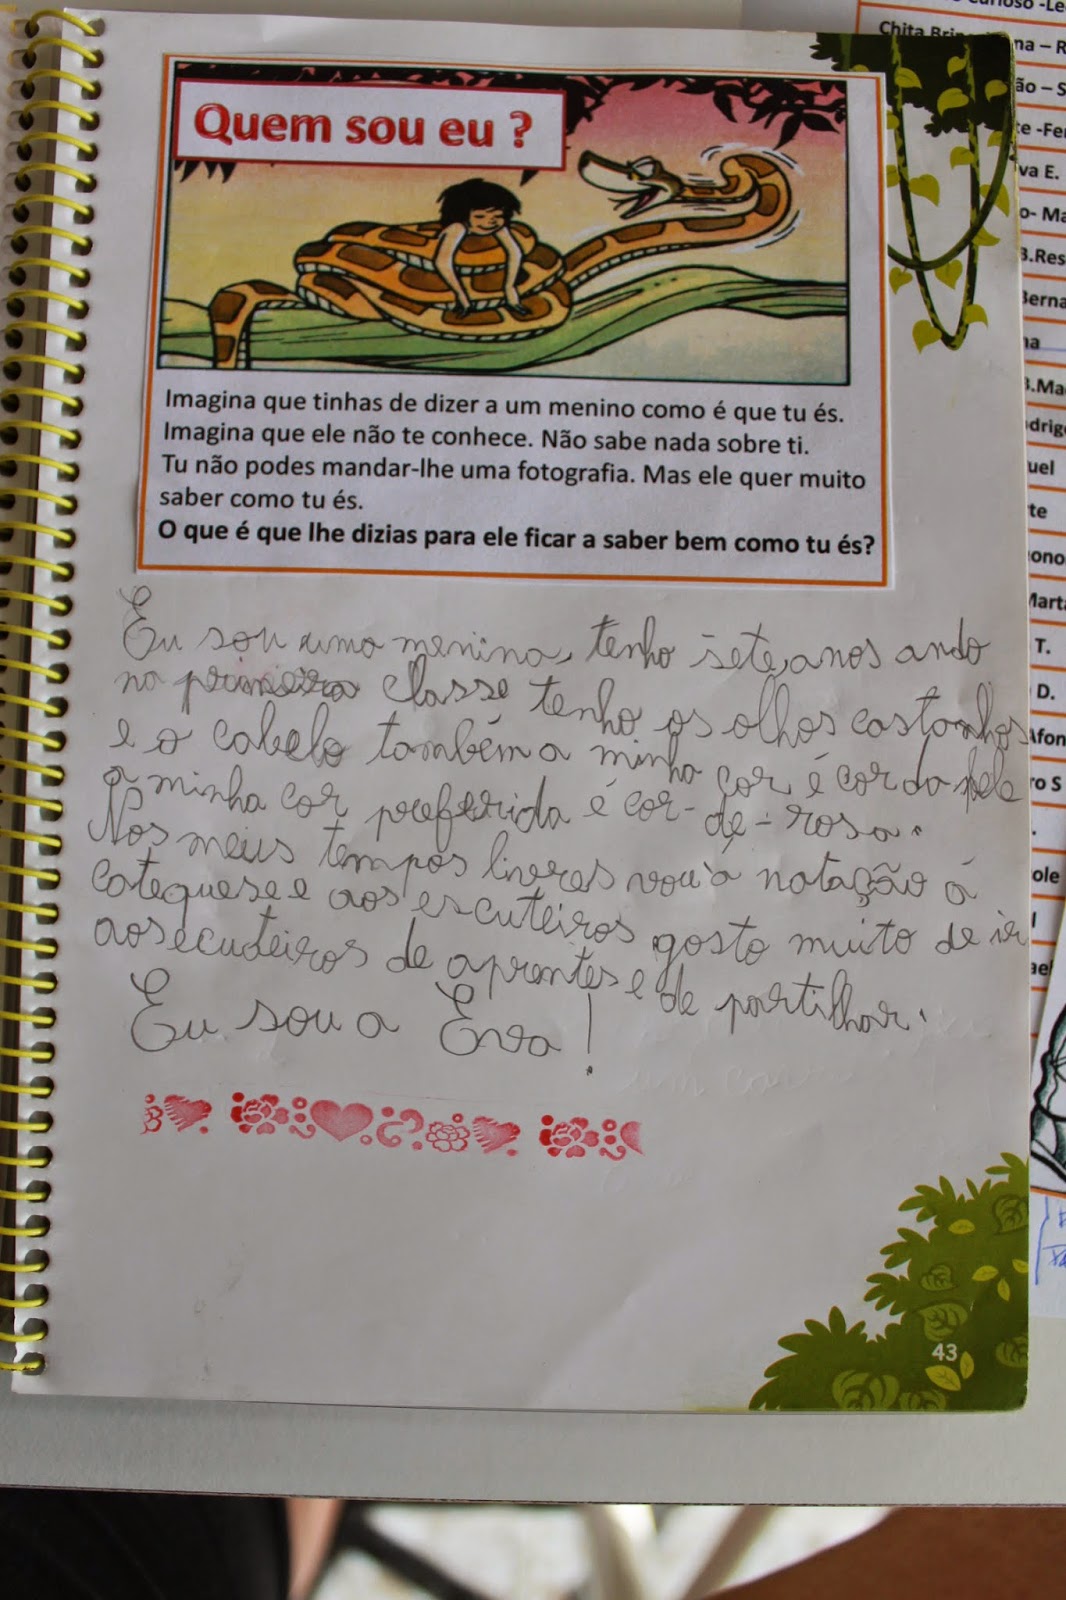 Quem sou eu ?
Imagina que tinhas de dizer a um menino como é que tu és.
Imagina que ele não te conhece. Não sabe nada sobre ti.
Tu não podes mandar-lhe uma fotografia. Mas ele quer muito
saber como tu és.
O que é que lhe dizias para ele ficar a saber bem como tu és?
Eu sou uma menina, tenho sete, anos ando
na primeira classe tenho os olhos castanhos
e o cabelo também a minha cor é cor da pele
a minha cor preferida é cor-de-rosa.
Nos meus tempos livres vou à natação á
catequese e aos escuteiros gosto muito de ir
aos ecuteiros de aprentes e de partilhar.
Eu sou a Eva!
43
Chita
na – R
ão – S
te -Fer
va E.
o- Ma
B.Res
Berna
na
B.Mad
drigo
uel
te
ono
Marta
T.
D.
Afon
ro S
ole
l
ael